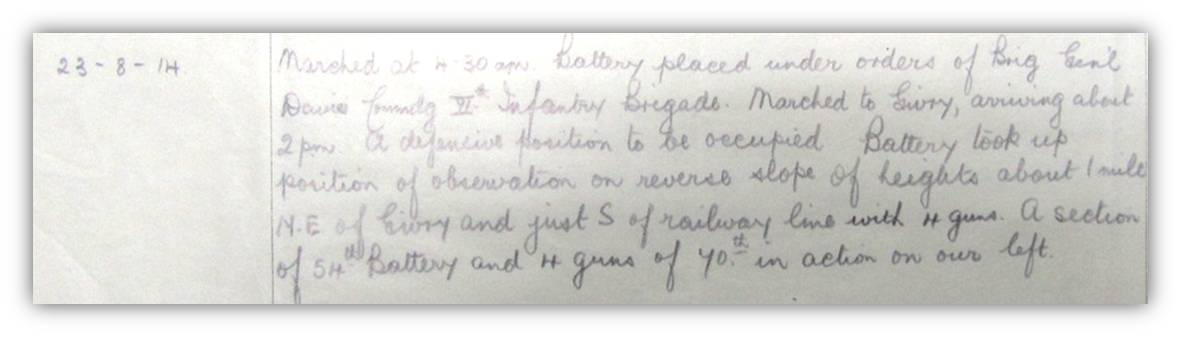 23-8-14 Marched at 4.30 am. Battery placed under orders of Brig Genl
Davies Commdg VIth Infantry Brigade. Marched to Givry, arriving about
2 pm. A defensive position to be occupied Battery took up
position of observation on reverse slope of heights about 1 mile
N.E of Givry and just S of railway line with 4 guns. A section
of 54th Battery and 4 guns of 70.th in action on our left.